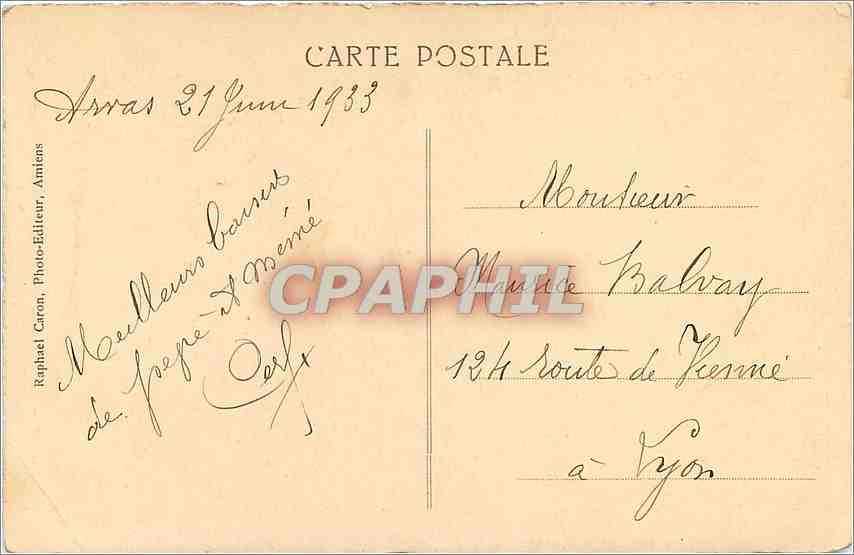 CARTE POSTALE
Arras 21 Juin 1933
Raphael Caron, Photo-Editeur, Amiens
Meilleurs baisers
de pepé et Mémé
Monsieur
Maurice Balvay
124 route de Vienne
à Lyon
CPAPHIL